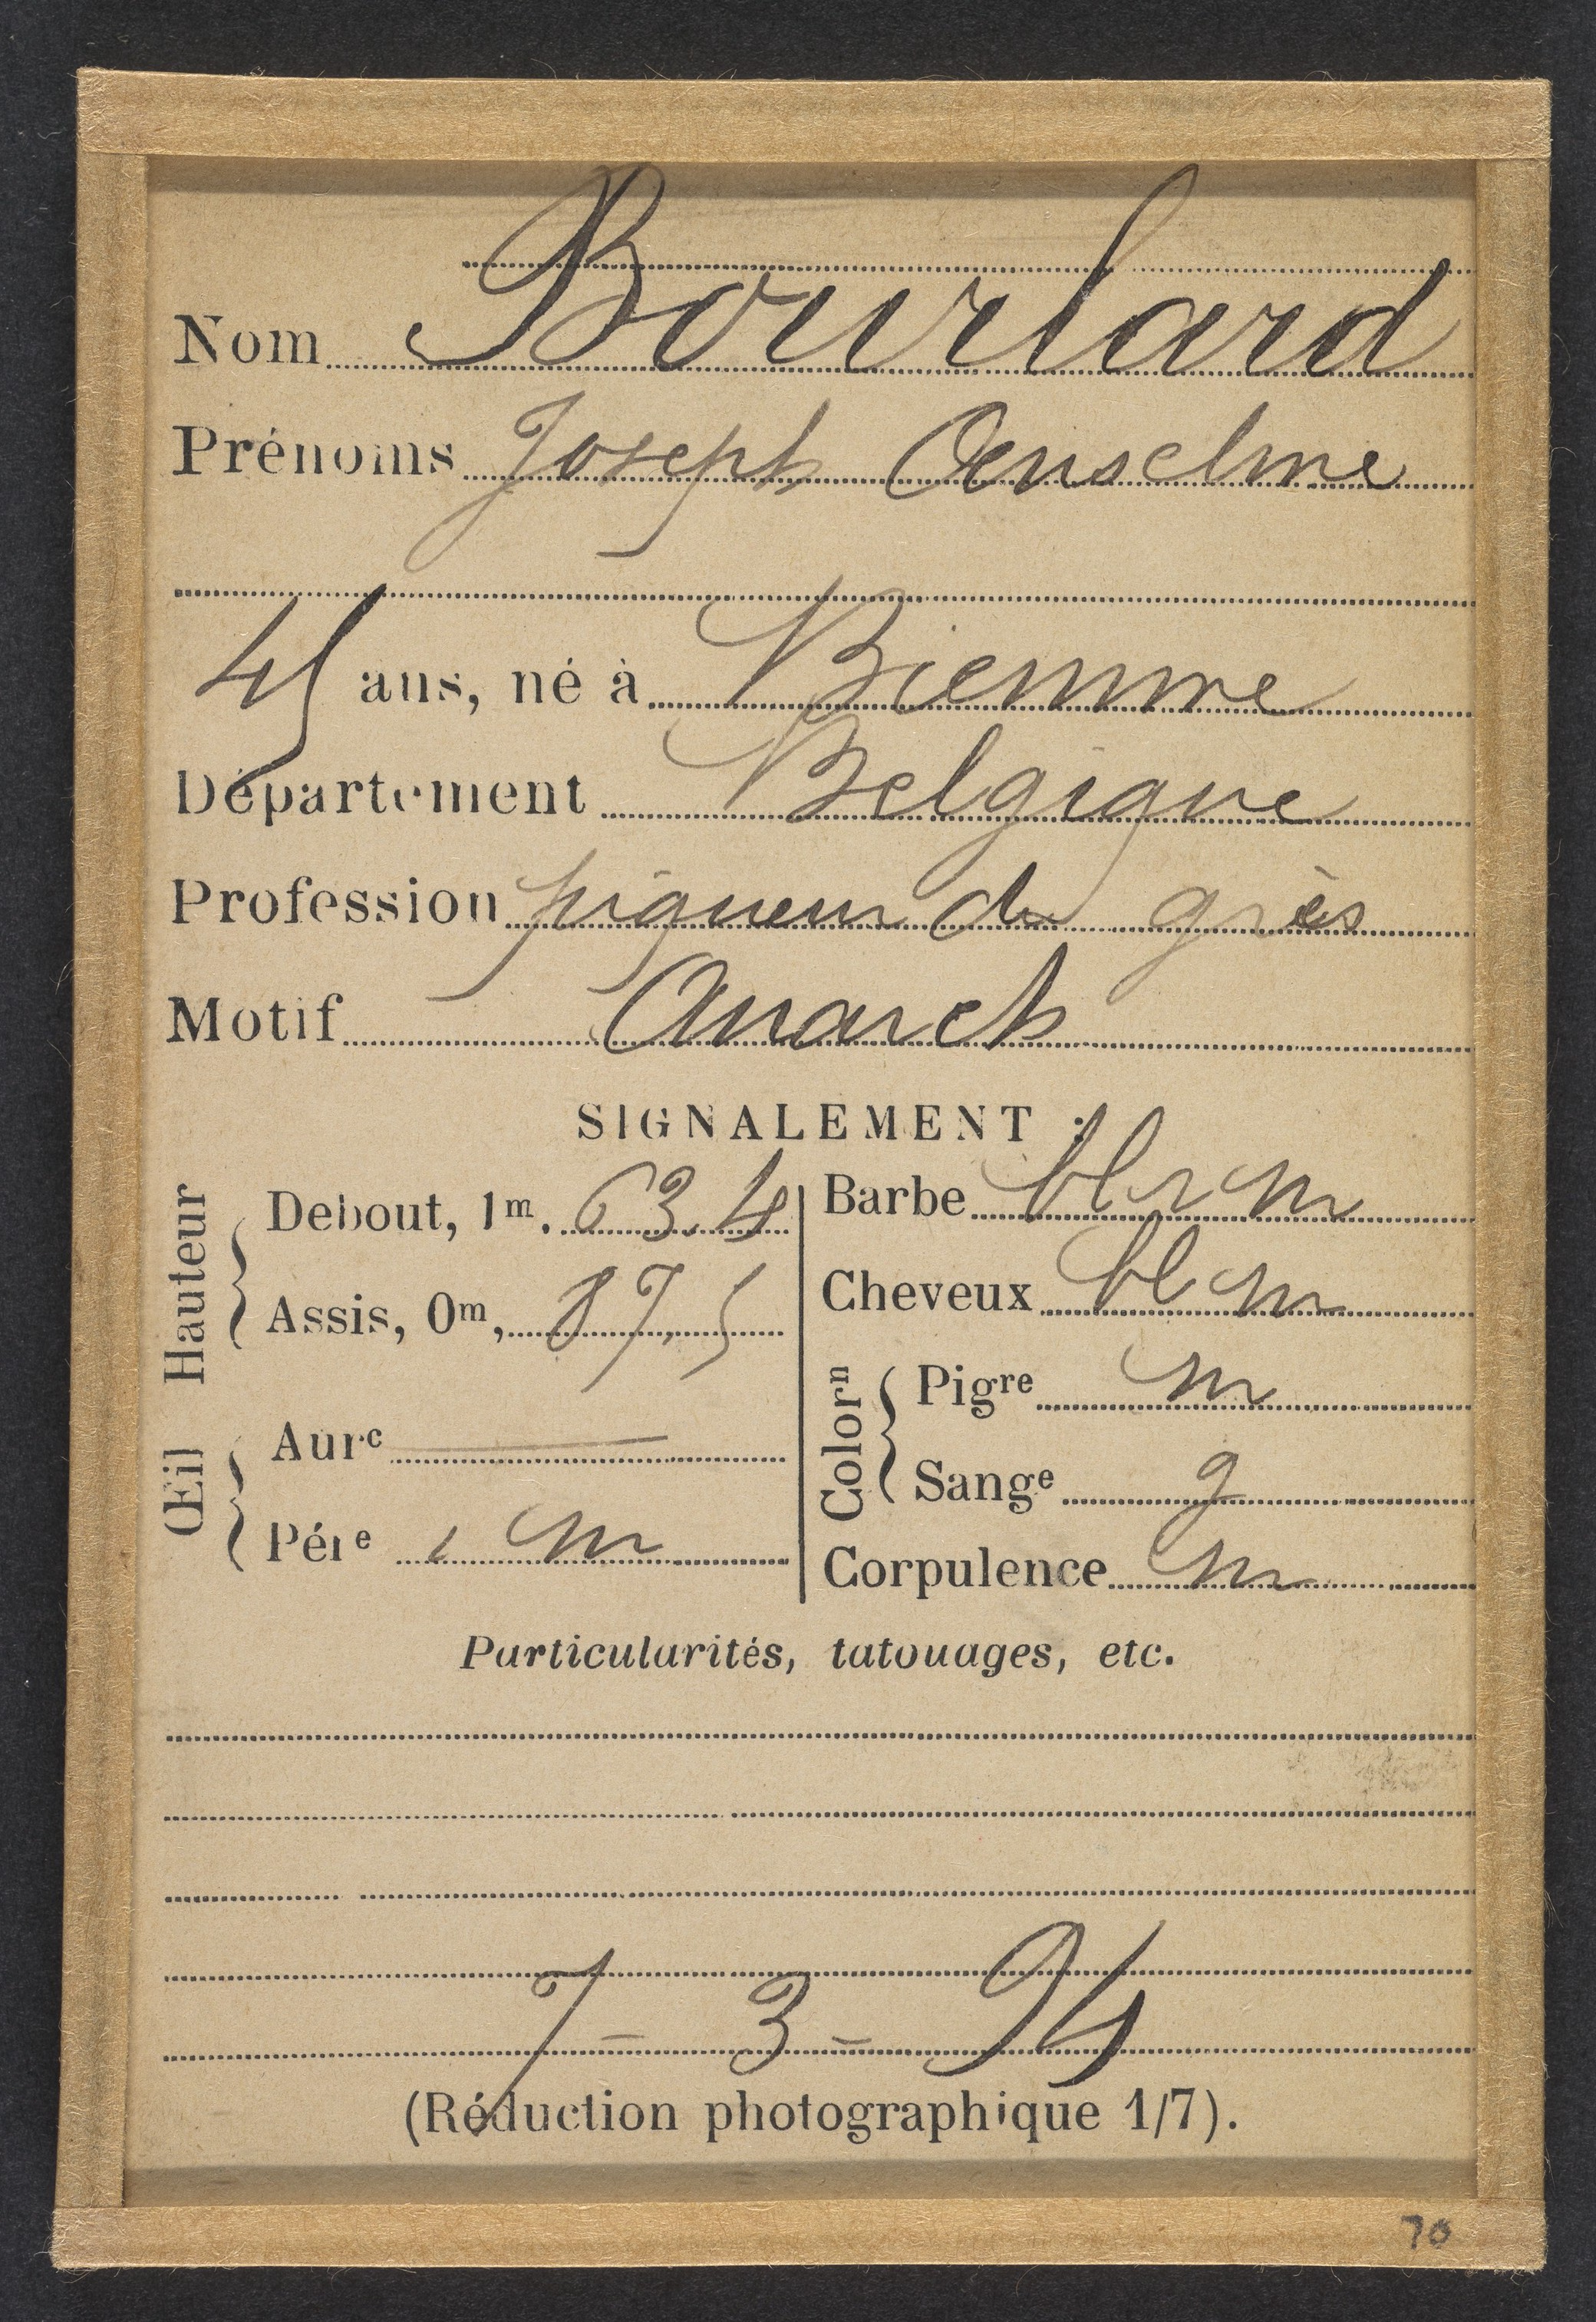 Nom Bourlard
Prénoms Joseph Anselme
45 ans, né à Biemme
Département Belgique
Profession piqueur de grès
Motif Anarch
SIGNALEMENT :
Hauteur
Debout, 1m. 63.4
Assis, 0m, 87,5
Œil
Aure
Pére i m
Barbe bl r m
Cheveux bl m
Colorn
Pigre m
Sange g
Corpulence m
Particularités, tatouages, etc.
7 - 3 - 94
(Réduction photographique 1/7).
70